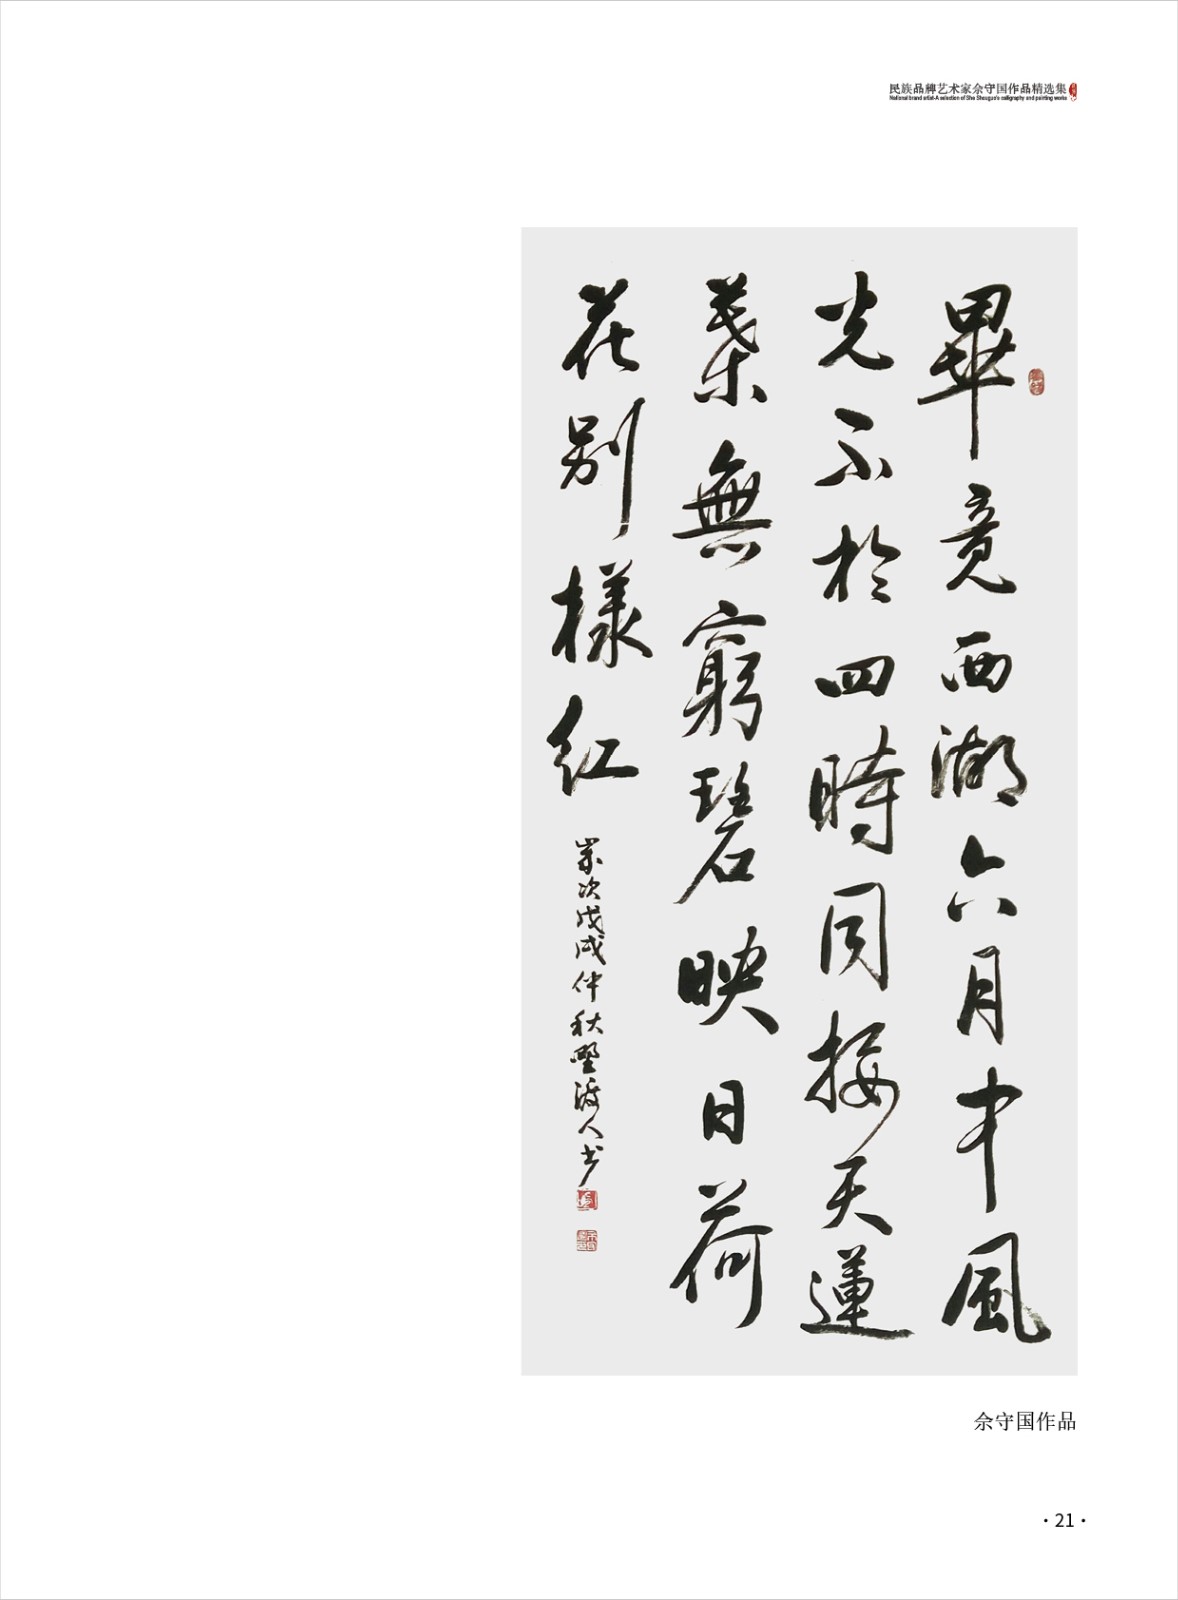 民族品牌艺术家佘守国作品精选集
National brand artist-A selection of She Shouguo's calligraphy and painting works
畢竟西湖六月中風
光不於四時同接天蓮
葉無窮碧映日荷
花別樣紅
歲次戊戌仲秋墅渡人书
佘守国作品
·21·